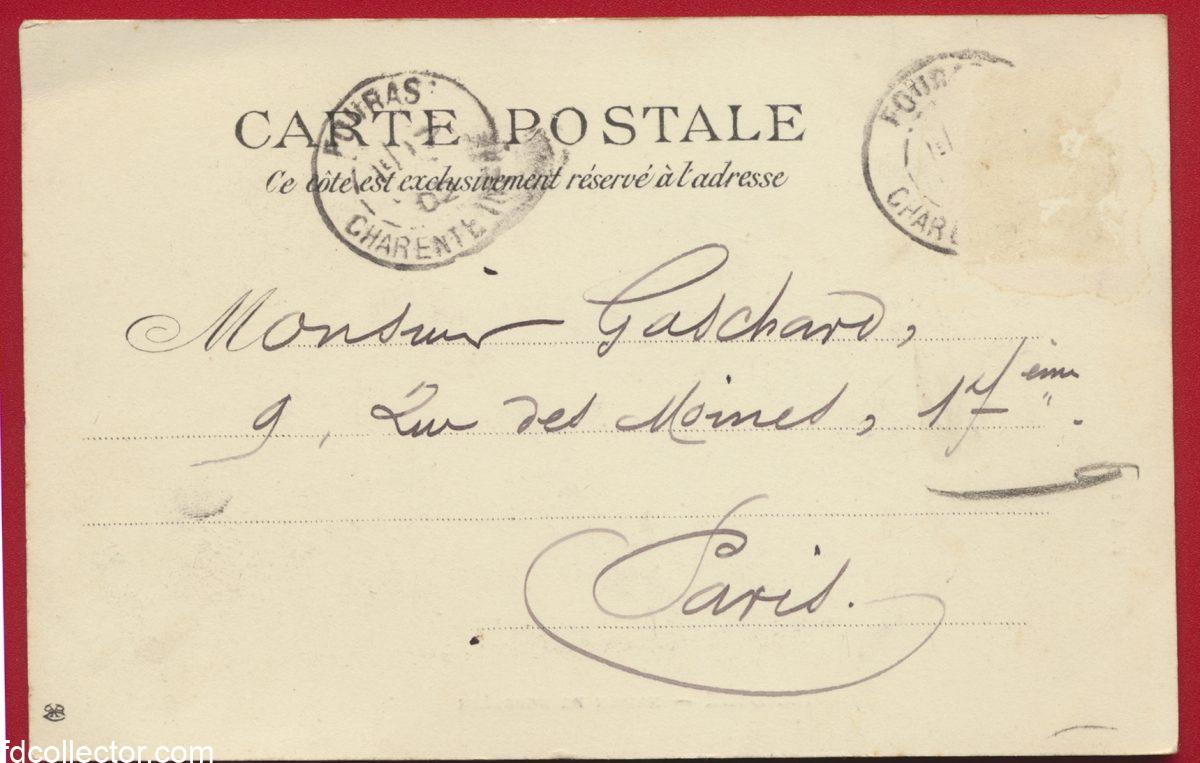 CARTE POSTALE
Ce côté est exclusivement réservé à l'adresse
FOURAS
02
CHARENTE INF
FOUR
CHAR
Monsieur Gaschard,
9, Rue des Moines, 17ème.
Paris.
fdcollector.com